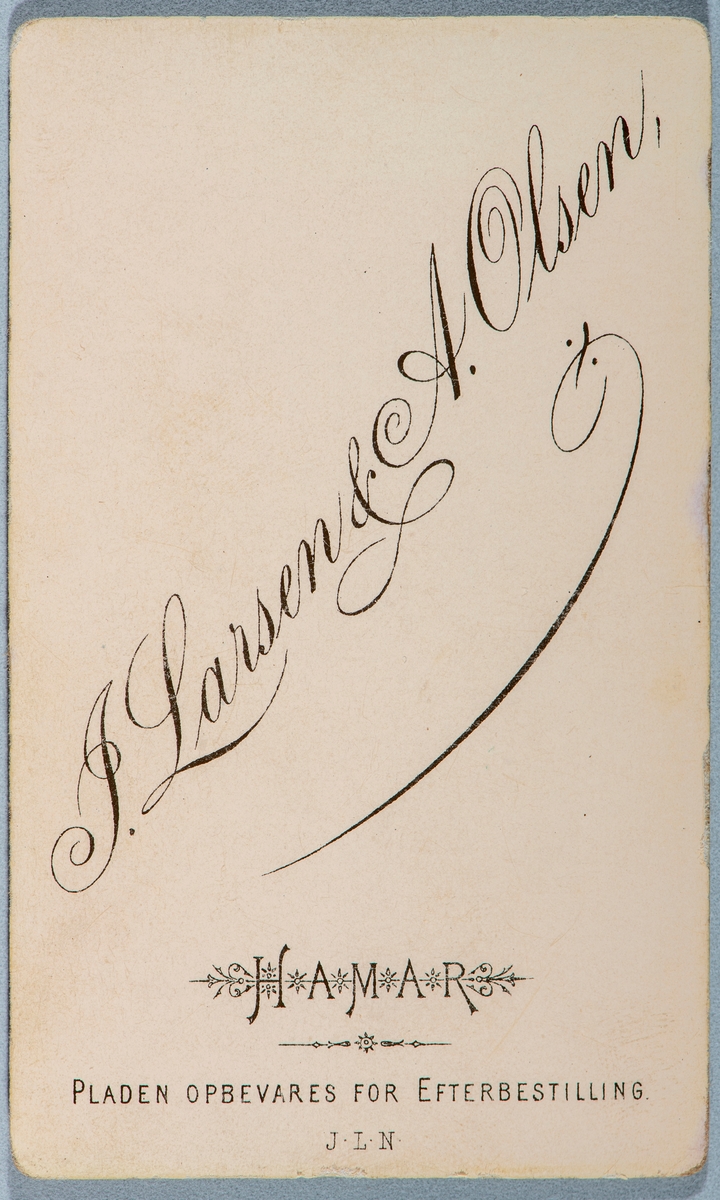 J. Larsen & A. Olsen,
HAMAR
PLADEN OPBEVARES FOR EFTERBESTILLING.
J·L·N·